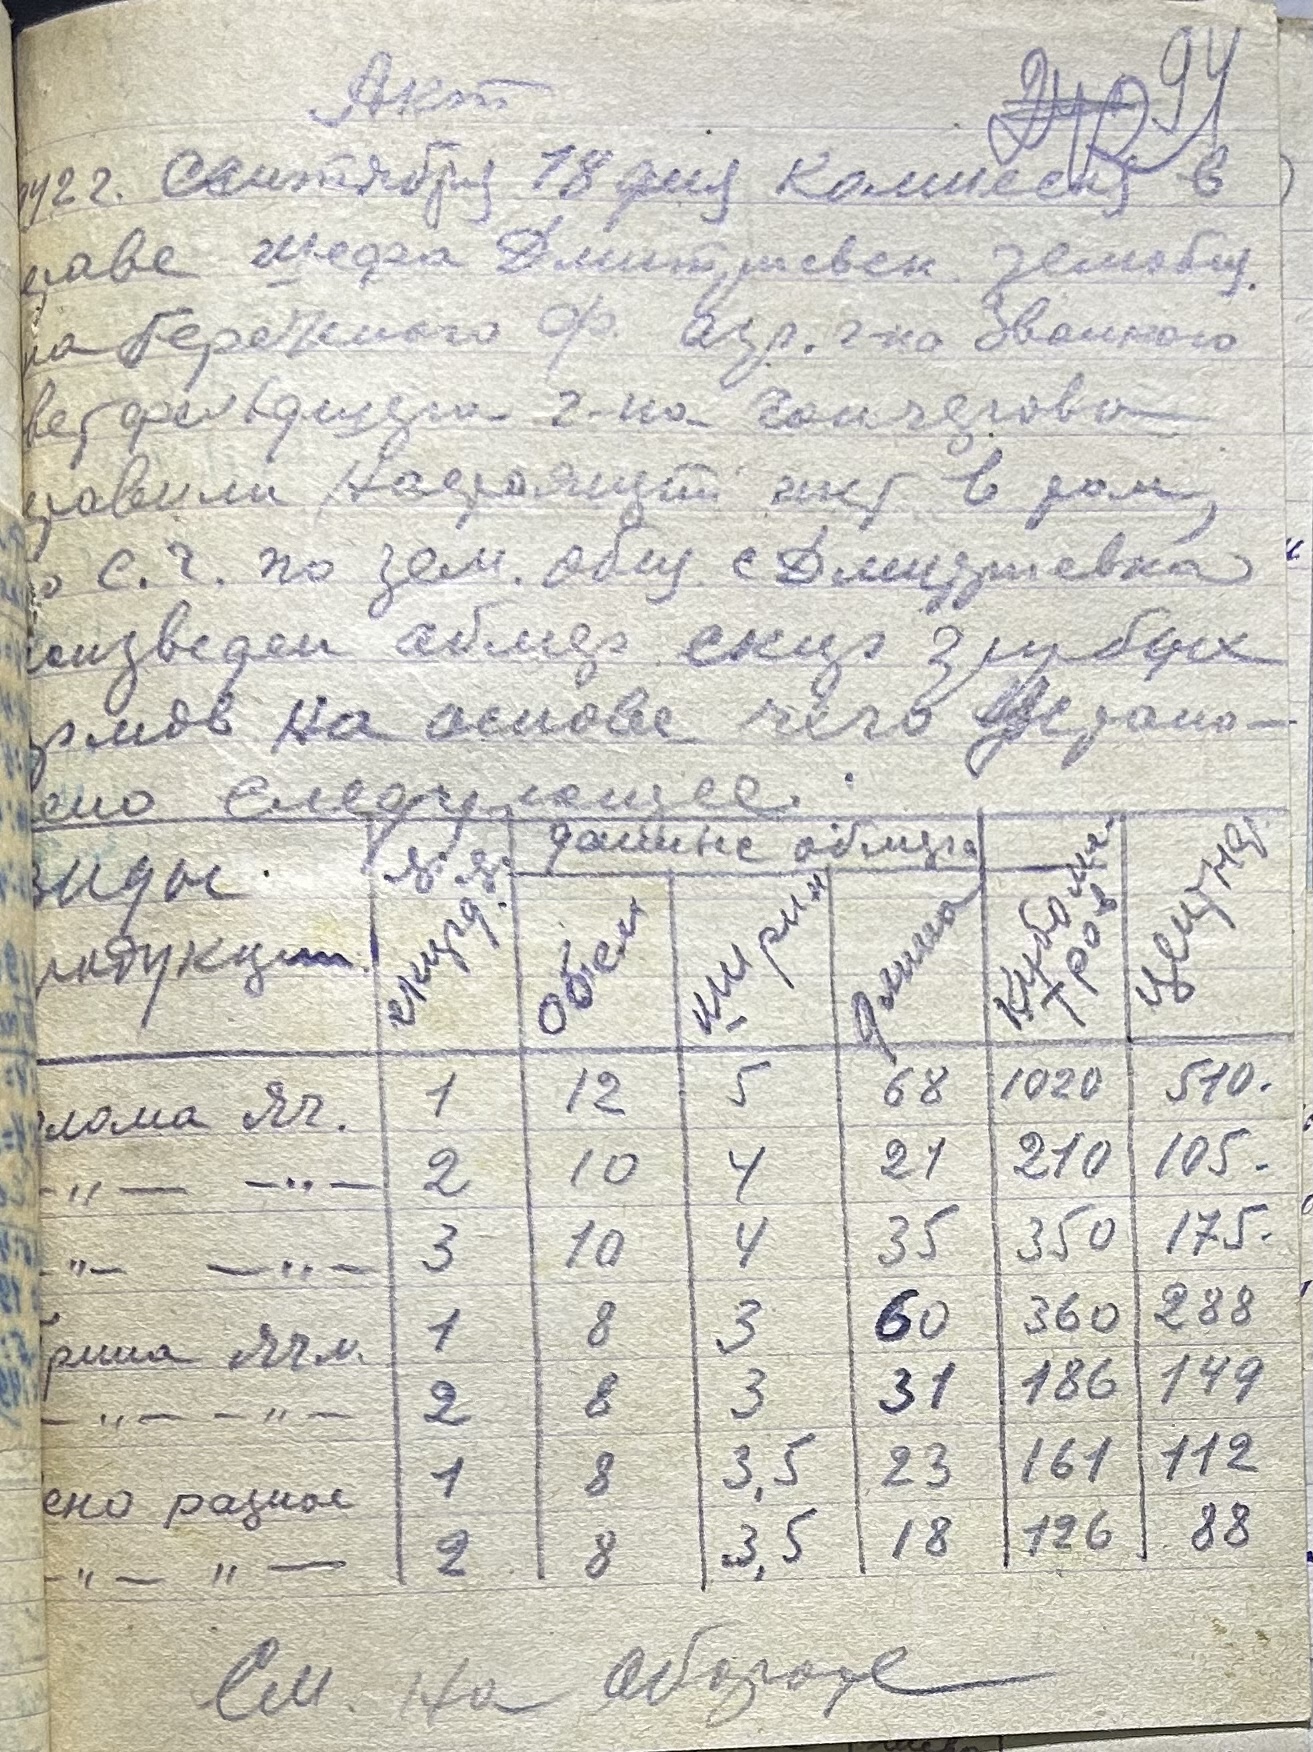 94
Акт
942 г. Сентября 18 дня Комиссия в
ставе шефа Дмитриевск земобщ.
на Бережного ф. агр. г-на Званного
ветфельдшера г-на Гончарова
ставили Настоящий акт в том,
о с.ч. по зем. общ. с Дмитриевка
оизведен обмер скирд грубых
рмов На основе чего Устано-
ено следующее.
виды
родукции
№ № скирд.
данные обмера
Объем
ширин
длина
Кубомет
тров
центнер
лома Яч. 1 12 5 68 1020 510.
-"- -"- 2 10 4 21 210 105.
-"- -"- 3 10 4 35 350 175.
рица Ячм. 1 8 3 60 360 288
-"- -"- 2 8 3 31 186 149
ено разное 1 8 3,5 23 161 112
-"- "- 2 8 3,5 18 126 88
См. На обороте